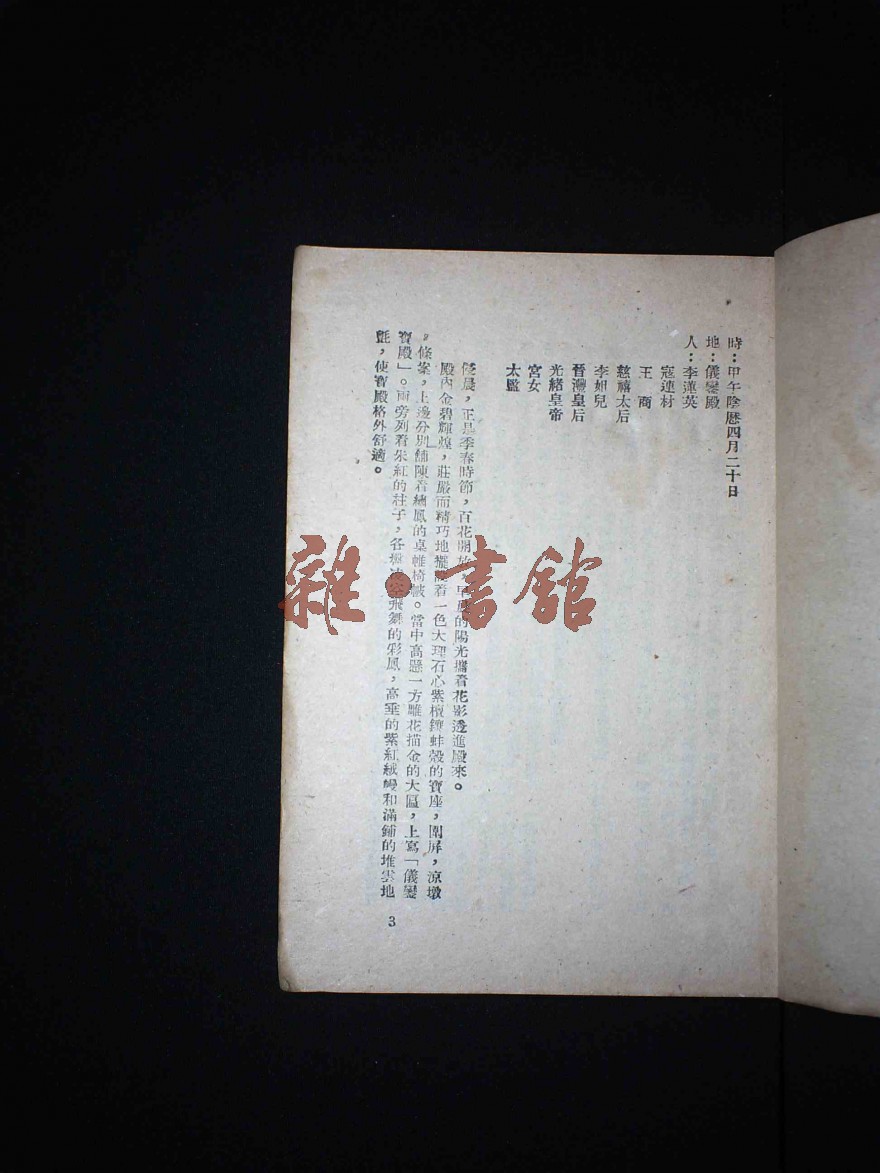 時：甲午陰歷四月二十日
地：儀鑾殿
人：李蓮英
寇連材
王　商
慈禧太后
李妲兒
晉灃皇后
光緒皇帝
宮女
太監
侵晨，正是季春時節，百花開放，早晨的陽光攜着花影透進殿來。
殿內金碧輝煌，莊嚴而精巧地擺設着一色大理石心紫檀鑲蚌殼的寶座，圍屏，涼墩
，條案，上邊分別舖陳着繡鳳的桌帷椅披。當中高懸一方雕花描金的大匾，上寫「儀鑾
寶殿」。兩旁列着朱紅的柱子，各盤凌空飛舞的彩鳳，高垂的紫紅絨幔和滿鋪的堆雲地
氈，使寶殿格外舒適。
3
雜·書館